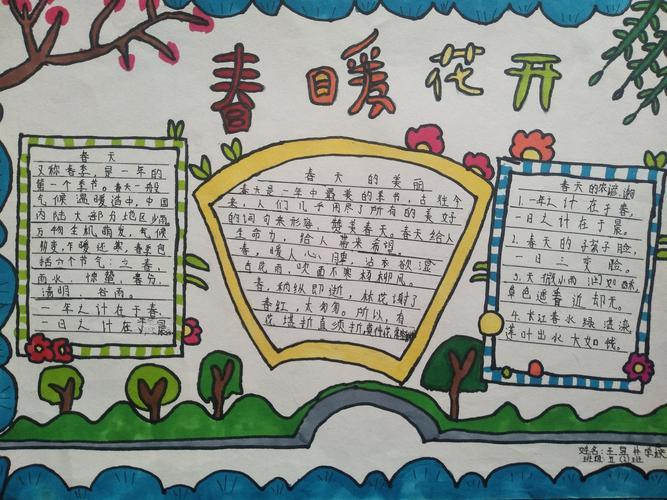 春暖花开
春天
又称春季,是一年的
第一个季节。春天一般
气候温暖适中,中国
内陆大部分地区少雨
万物生机萌发,气候
多变,乍暖还寒,春季包
括六个节气:立春、
雨水、惊蛰、春分、
清明、谷雨。
一年之计在于春,
一日之计在于晨
春天的美丽
春天是一年中最美的季节,古往今
来,人们几乎用尽了所有的美好
的词句来形容,赞美春天。春天给人
生命力,给人带来希望
春,暖人心脾,沾衣欲湿
杏花雨,吹面不寒杨柳风。
春,稍纵即逝,林花谢了
春红,太匆匆。所以,有
花堪折直须折,莫待花
春天的农谚、谢
1.一年之计在于春,
一日之计在于晨。
2.春天的孩子脸,
一日三变脸。
3.天街小雨润如酥,
草色遥看近却无。
4.长江春水绿堪染,
莲叶出水大如钱。
姓名:王
班级五(2)班